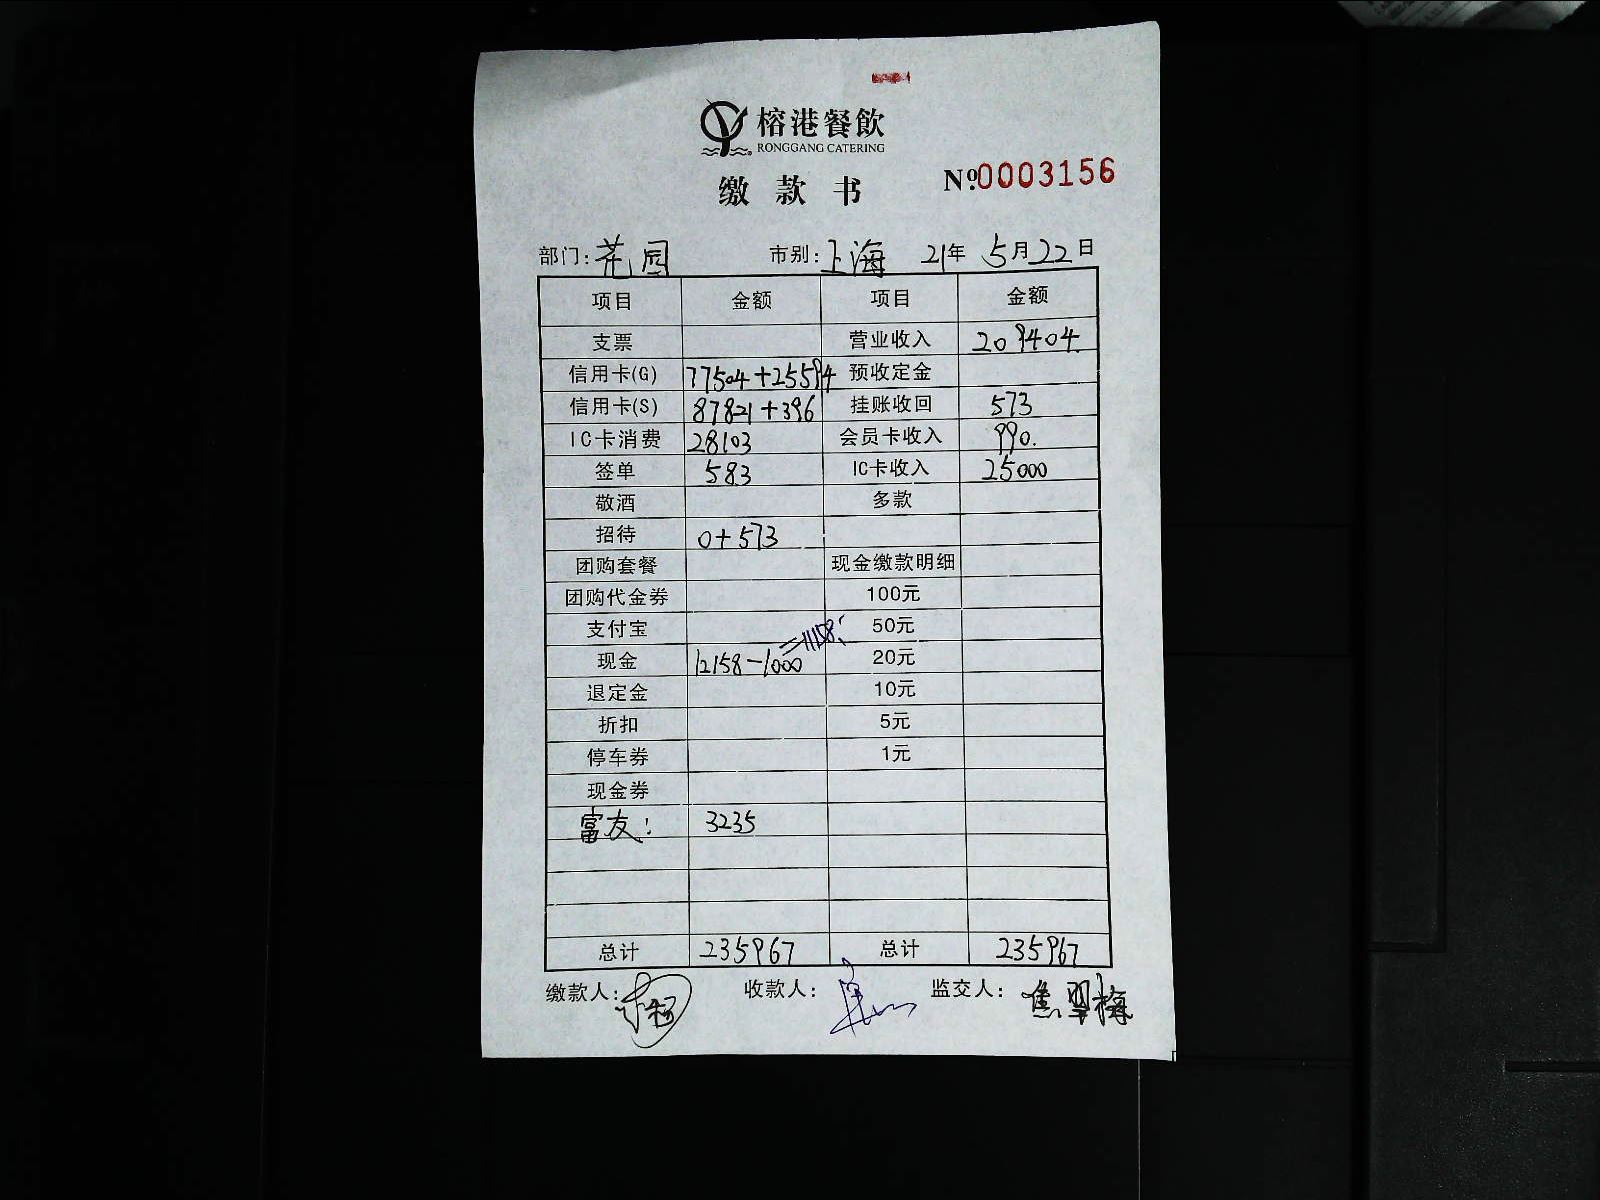 榕港餐飲
RONGGANG CATERING
缴款书 №0003156
部门: 花园 市别: 上海 21年 5月22日
项目 金额 项目 金额
支票 营业收入 209404.
信用卡(G) 77504+25594 预收定金
信用卡(S) 87821+396 挂账收回 573
IC卡消费 28103 会员卡收入 990.
签单 583 IC卡收入 25000
敬酒 多款
招待 0+573
团购套餐 现金缴款明细
团购代金券 100元
支付宝 50元
现金 12158-1000=11158. 20元
退定金 10元
折扣 5元
停车券 1元
现金券
富友: 3235
总计 235967 总计 235967
缴款人: 收款人: 监交人: 焦翠梅